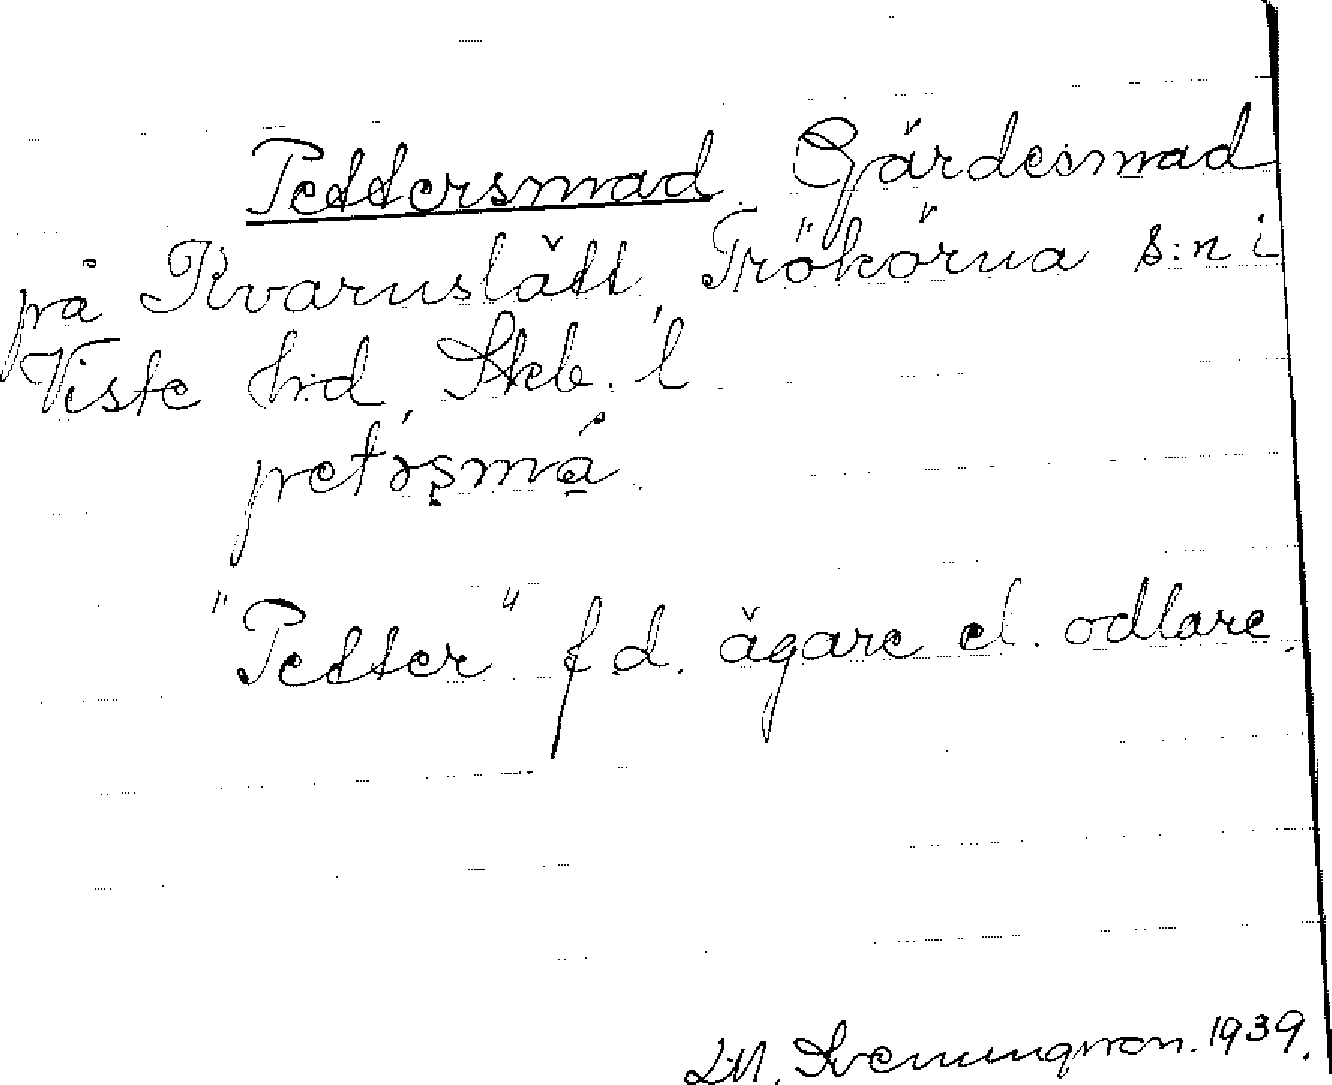 Pettersmad Gärdesmad
på Kvarnslätt, Trökörna s:n i
Viste h:d, Skb. l.
"Petter" f d. ägare el. odlare.
Sveningson. 1939.